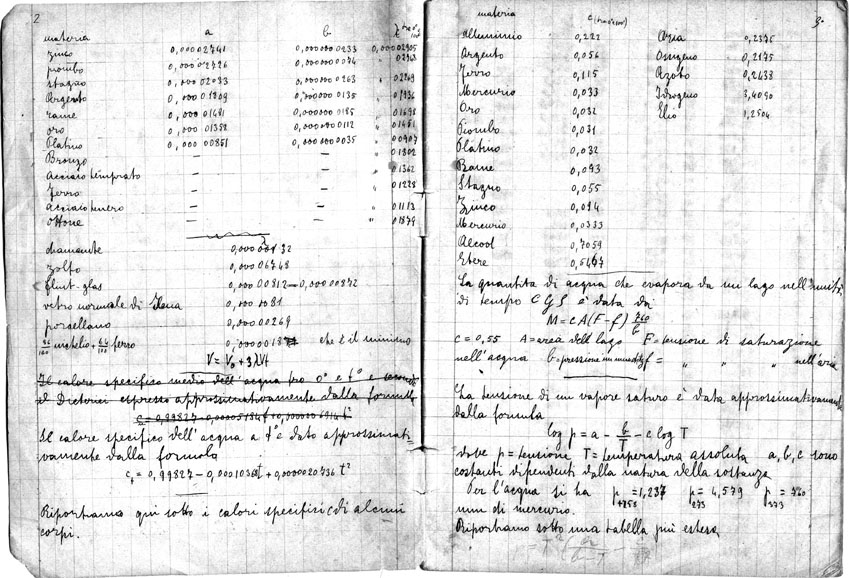 2
materia a b
zinco 0,00002741 0,0000000233 0,00002905
piombo 0,00002726 0,0000000074
stagno 0,00002033 0,0000000263 " 02269
Argento 0,00001809 0,0000000135 " 01936
rame 0,00001481 0,0000000185 " 01698
oro 0,00001358 0,0000000112 " 01451
Platino 0,00000851 0,0000000035 " 00907
Bronzo — — " 01802
Acciaio temprato — — " 01362
Ferro — — " 01228
acciaio tenero — — " 01113
ottone — — " 01879
diamante 0,00000132
zolfo 0,00006748
flint-glas 0,00000812—0,00000872
vetro normale di Jena 0,0000081
porcellana 0,00000269
36/100 nichelio + 64/100 ferro che è il minimo
V = V₀ + 3λVt
Il calore specifico medio dell'acqua fra 0° e t° è secondo
il Dieterici espresso approssimativamente dalla formula
Il calore specifico dell'acqua a t° è dato approssimati-
vamente dalla formola
cₜ = 0,99827 - 0,00010368t + 0,0000020736 t²
Riportiamo qui sotto i calori specifici c di alcuni
corpi.
3.
materia
Alluminio 0,222 Aria 0,2375
Argento 0,056 Ossigeno 0,2175
Ferro 0,115 Azoto 0,2438
Mercurio 0,033 Idrogeno 3,4090
Oro 0,032 Elio 1,2504
Piombo 0,031
Platino 0,032
Rame 0,093
Stagno 0,055
Zinco 0,094
Mercurio 0,0333
Alcool 0,7059
Etere 0,5467
La quantità di acqua che evapora da un lago nell'unità
di tempo C G S è data da
M = c A (F - f) 760/b
c = 0,55 A = area del lago F = tensione di saturazione
nell'acqua b = pressione in f = " " " nell'aria
La tensione di un vapore saturo è data approssimativamente
dalla formula
log p = a - b/T - c log T
dove p = tensione T = temperatura assoluta a, b, c sono
costanti dipendenti dalla natura della sostanza
Per l'acqua si ha p₊₂₅₃ = 1,237 p₂₇₃ = 4,579 p₃₇₃ = 760
mm di mercurio.
Riportiamo sotto una tabella più estesa